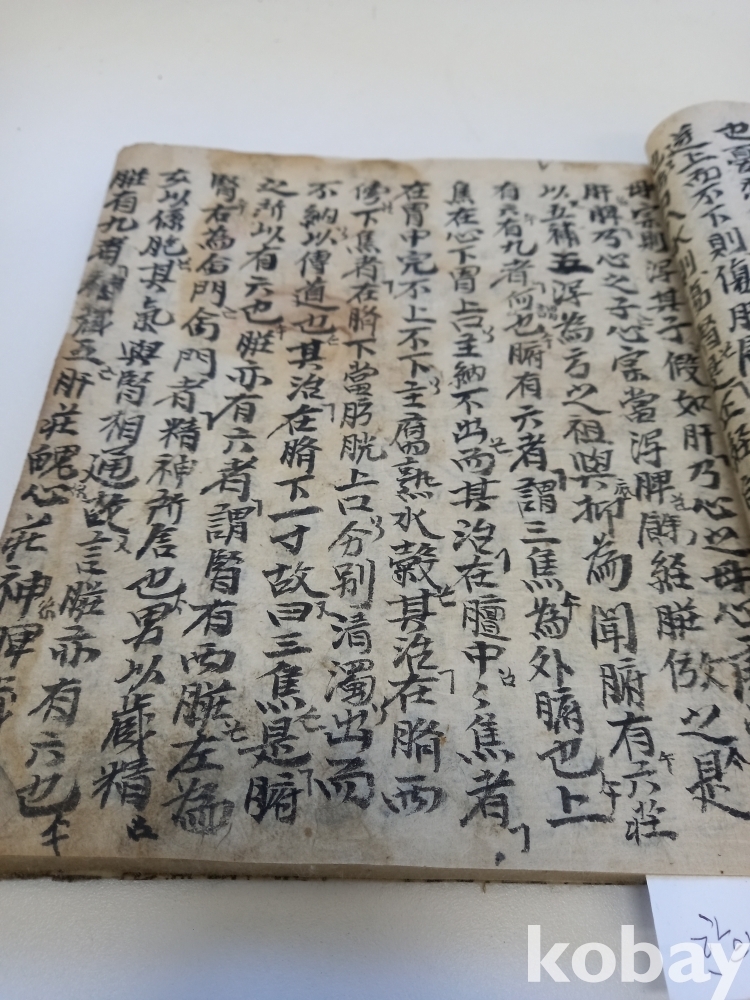 母宗則瀉其子假如肝乃心之母心
肝脾乃心之子心宗當瀉脾餘經脉倣之是
以五補五瀉為方之祖與抑為聞腑有六莊
有六有九者何也腑有六者謂三焦為外腑也上
焦在心下胃上口主納不出而其治在膻中〻焦者
在胃中完不上不下主腐熟水穀其治在臍両
傍下焦者在臍下當肪胱上口分別清濁出而
不納以傳道也其治在臍下一寸故曰三焦是腑
之所以有六也脏亦有六者謂腎有両脏左為
腎右為命門命門者精神所居也男以藏精
女以係胞其氣與腎相通故言脏亦有六也
脏有九者 五肝莊魄心莊神脾
也
逆上而不下則傷
kobay